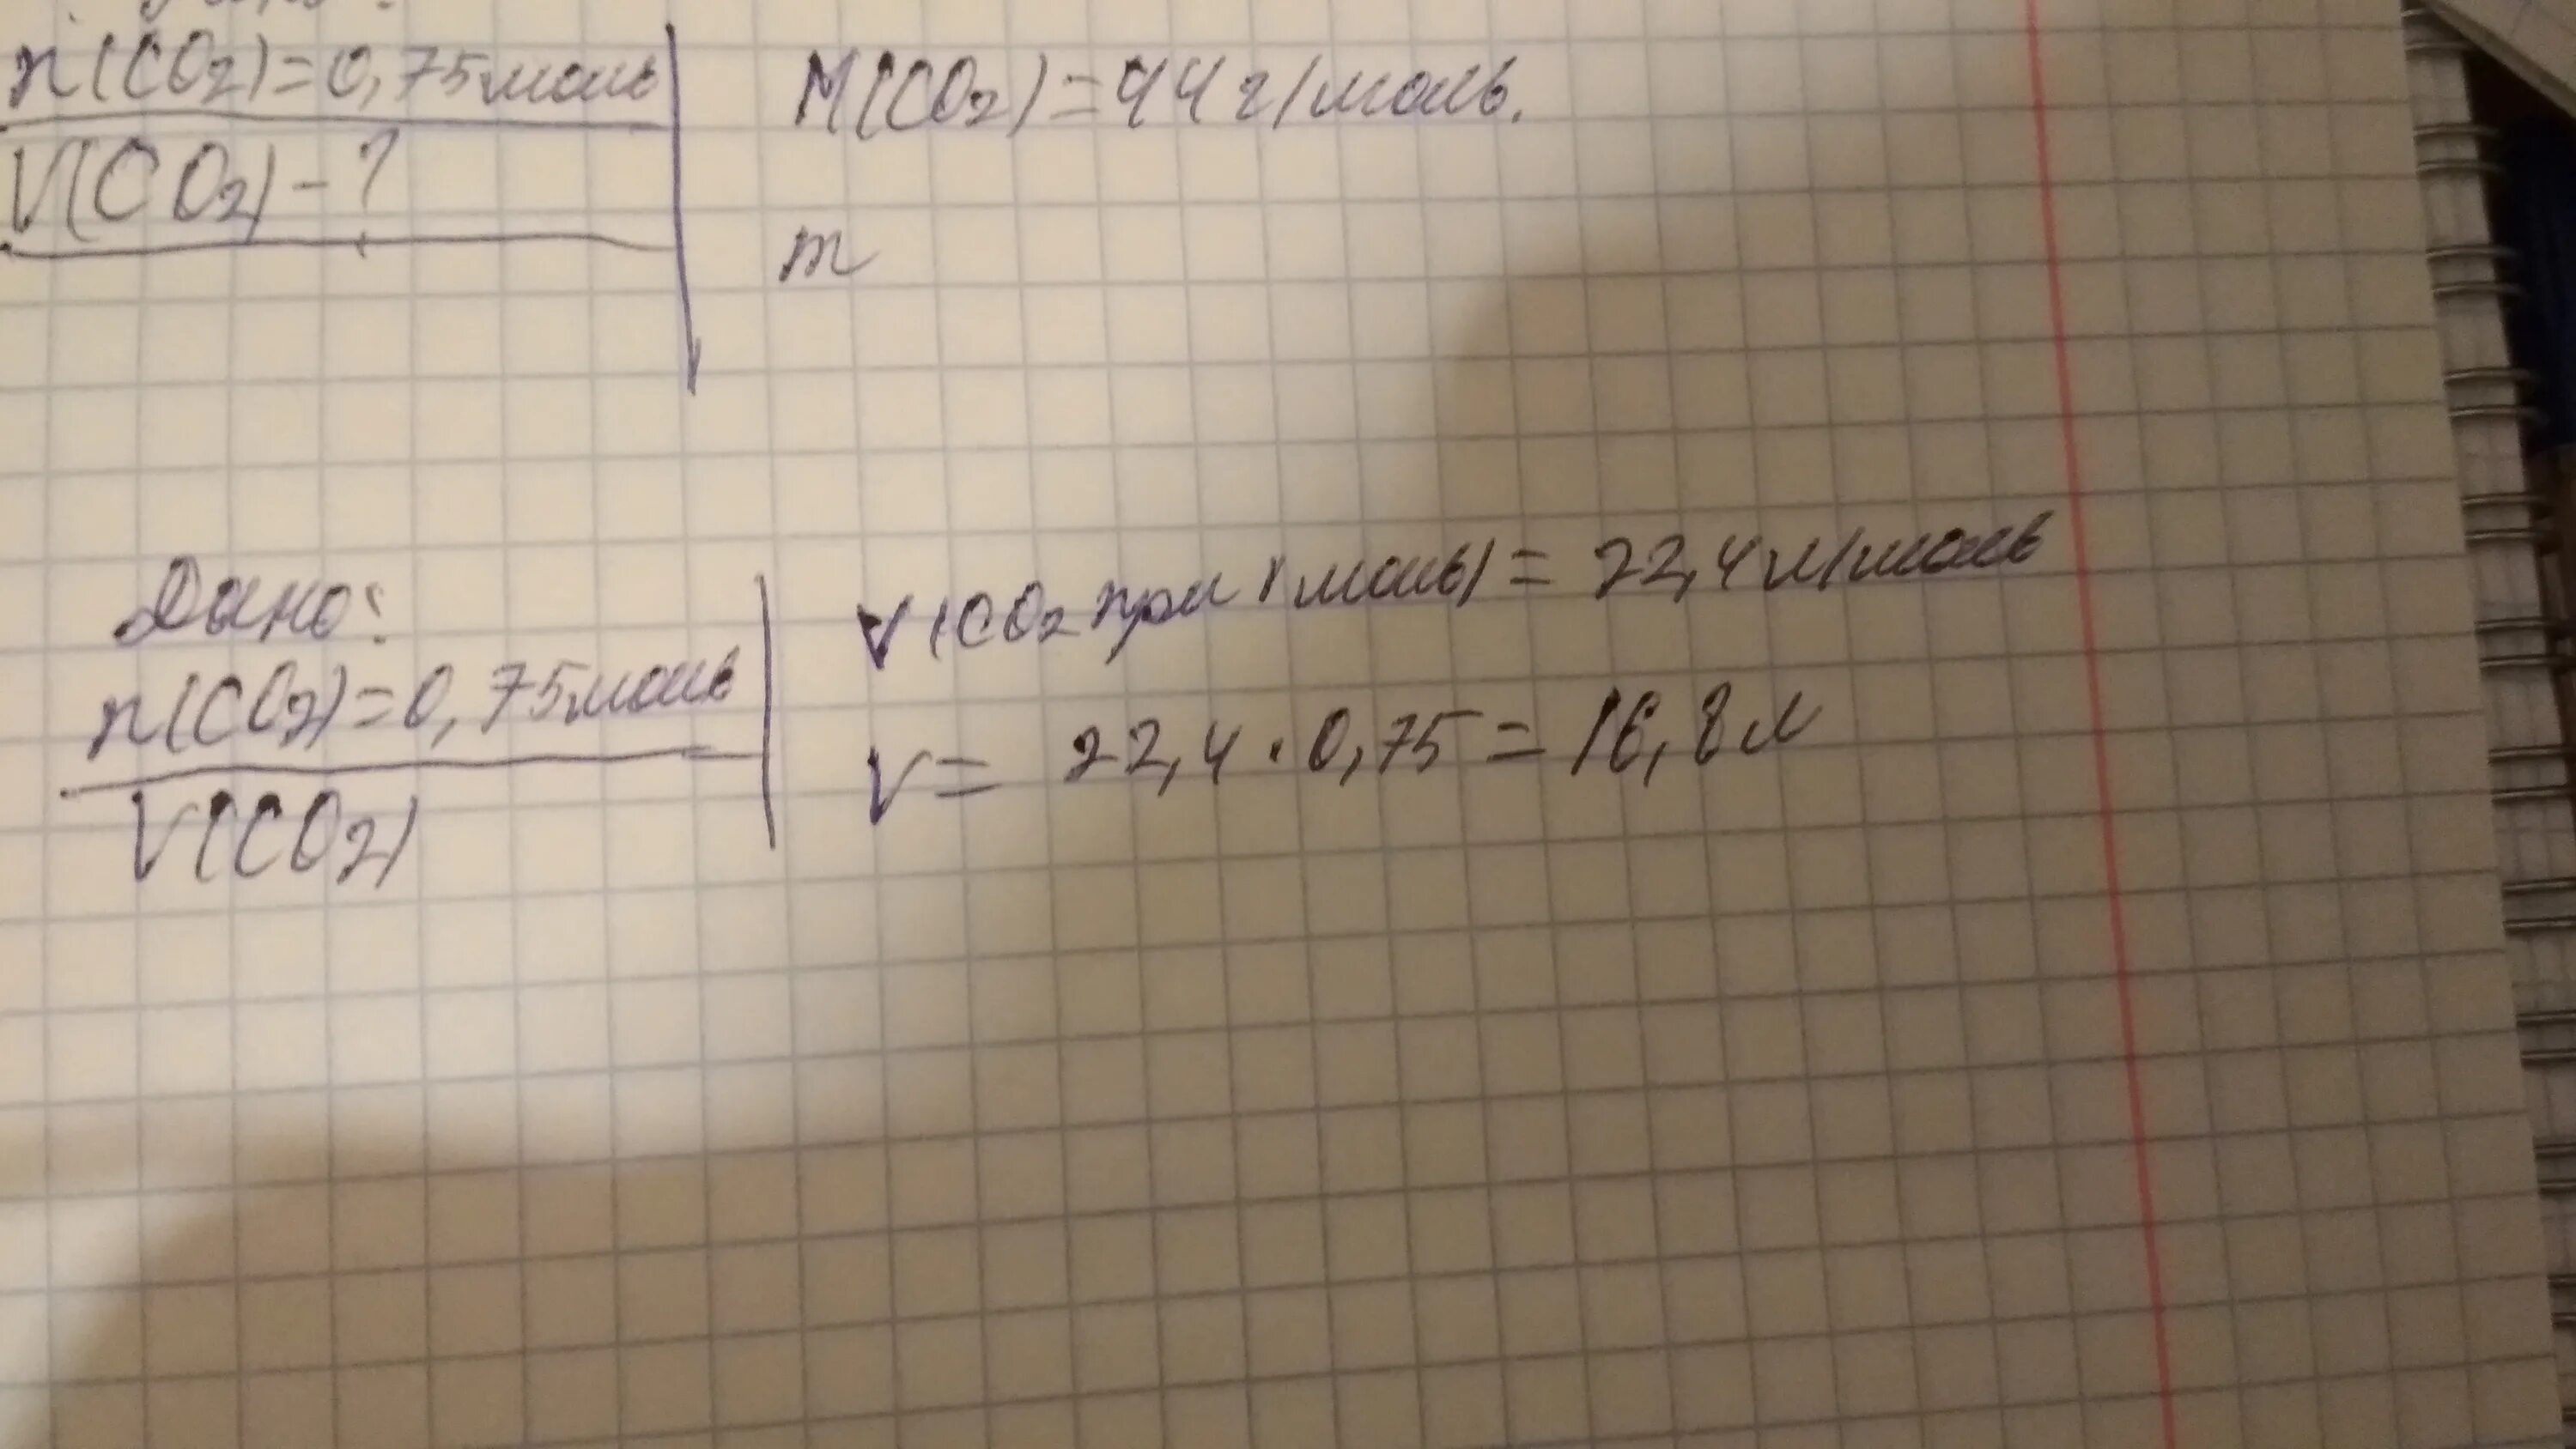 n(CO2)=0,75моль
V(CO2)-?
M(CO2)=44г/моль.
m
Дано:
n(CO2)=0,75моль
V(CO2)
V(CO2 при 1 моль)=22,4л/моль
V= 22,4·0,75=16,8л